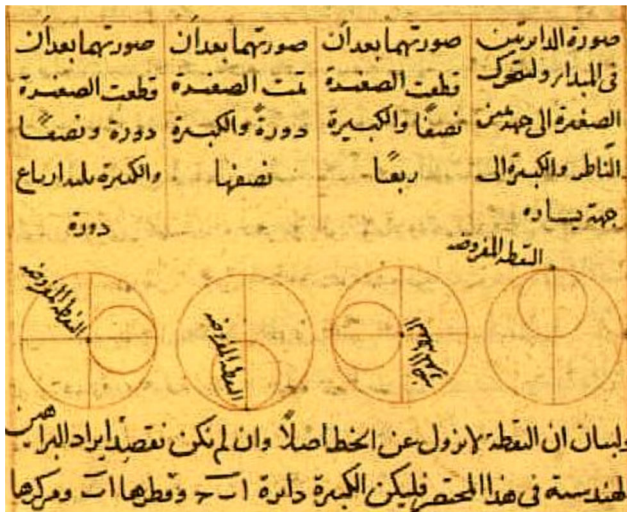 صورة الدائرتين
في المبدأ ولتتحرك
الصغيرة الى جهة يمين
الناظر والكبيرة الى
جهة يساره
صورتهما بعد ان
قطعت الصغيرة
نصفًا والكبيرة
ربعًا
صورتهما بعد ان
تمت الصغيرة
دورةً والكبيرة
نصفها
صورتهما بعد ان
قطعت الصغيرة
دورة ونصفًا
والكبيرة ثلثة ارباع
دورة
النقطة المفروضة
النقطة المفروضة
النقطة المفروضة
ولبيان ان النقطة لا تزول عن الخط اصلاً وان لم نكن نقصد ايراد البراهين
لهندسية في هذا المختصر فليكن الكبيرة دائرة ا ب ج وقطرها ا ب ومركزها